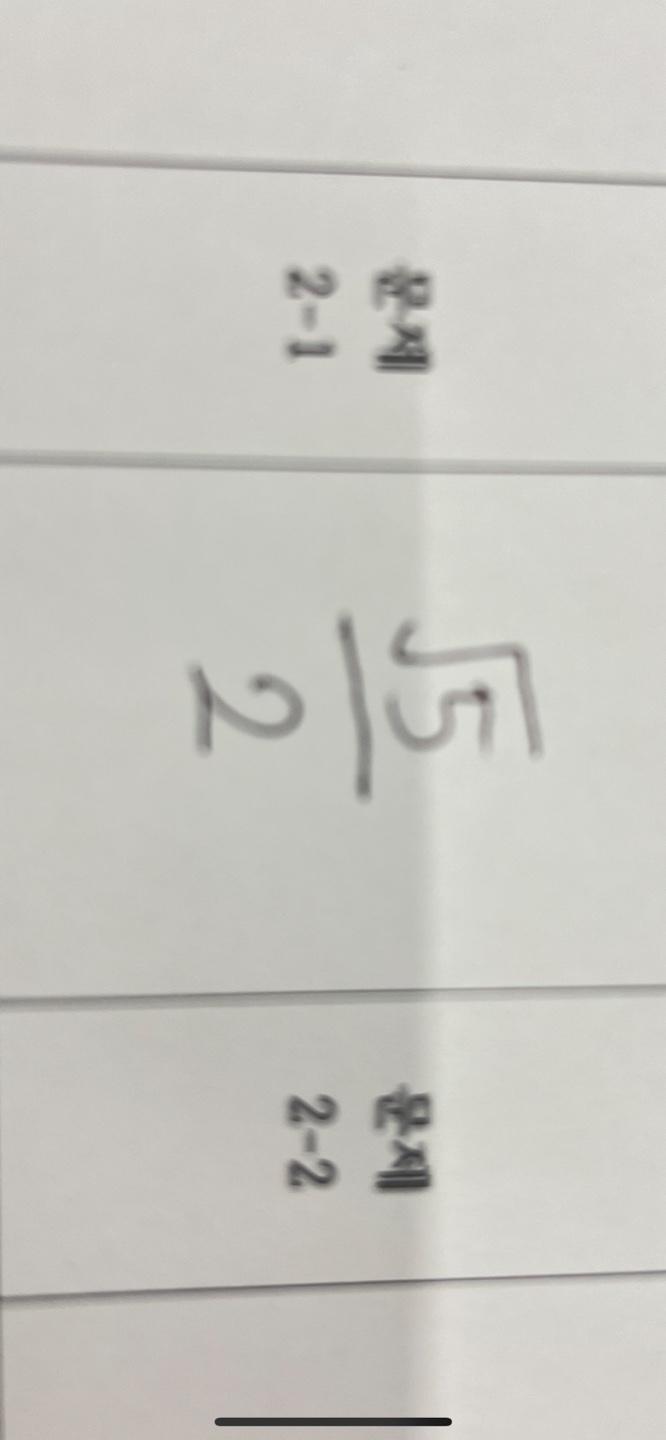 문제
2-1
√5
2
문제
2-2